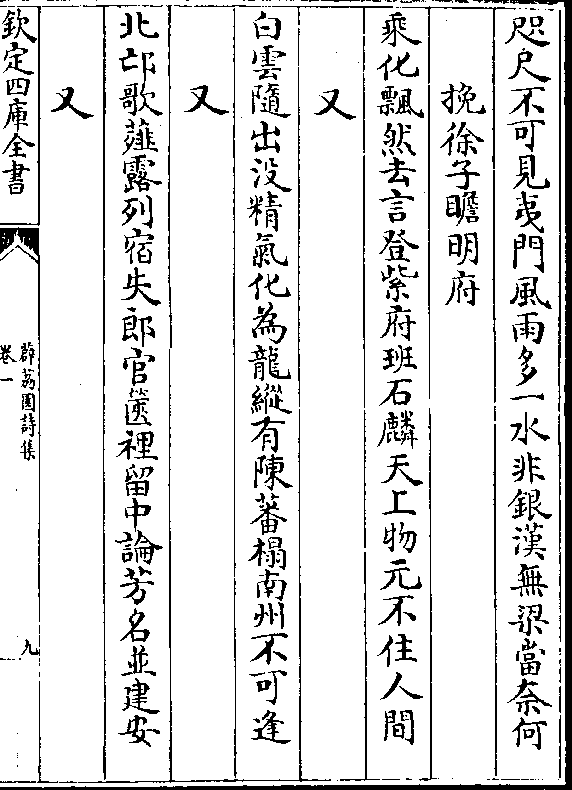 咫尺不可見夷門風雨多一水非銀漢無梁當奈何
挽徐子瞻明府
乘化飄然去言登紫府班石麟天上物元不住人間
又
白雲隨出没精氣化為龍縱有陳蕃榻南州不可逢
又
北邙歌薤露列宿失郎官篋裡留中論芳名並建安
又
欽定四庫全書
薜荔園詩集
卷一
九